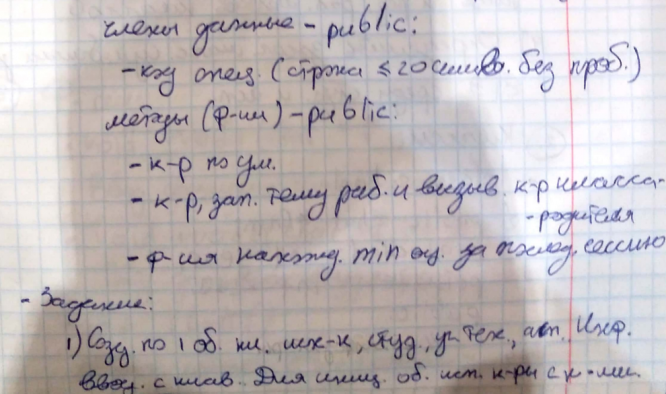 члены данные - public:
- код спец. (строка ≤ 20 симво. без проб.)
методы (ф-ии) - public:
- к-р по ум.
- к-р, зап. тему раб. и вызыв. к-р класса-
- родителя
- ф-ия нахожд. min оц. за послед. сессию
- Задание:
1) Созд. по 1 об. кл. шк-к, студ., уч. тех., асп. Инф.
ввод. с клав. Для иниц. об. исп. к-ры с